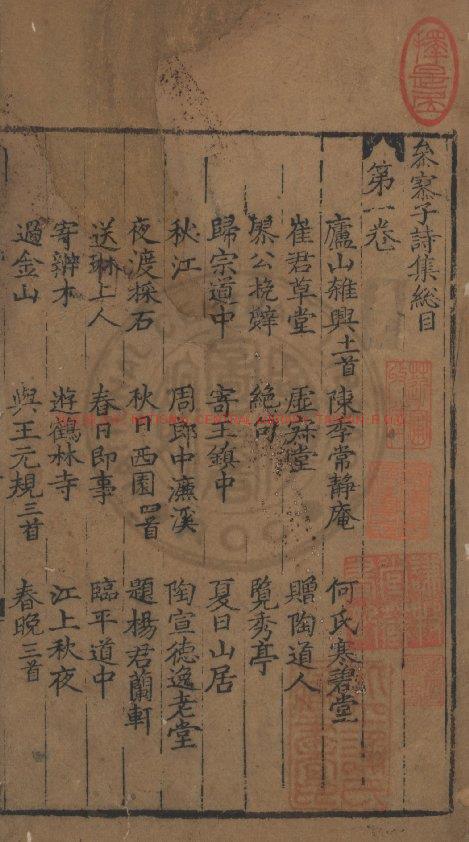 參寮子詩集總目
第一卷
廬山雜興十一首 陳季常靜庵 何氏寒碧堂
崔君草堂 虛齋堂 贈陶道人
畧公挽辤 絶句 覽秀亭
歸宗道中 寄王鎮中 夏日山居
秋江 周郎中濂溪 陶宣德逸老堂
夜渡採石 秋日西園四首 題楊君蘭軒
送琳上人 春日即事 臨平道中
寄辧才 遊鶴林寺 江上秋夜
過金山 與王元規三首 春晚三首